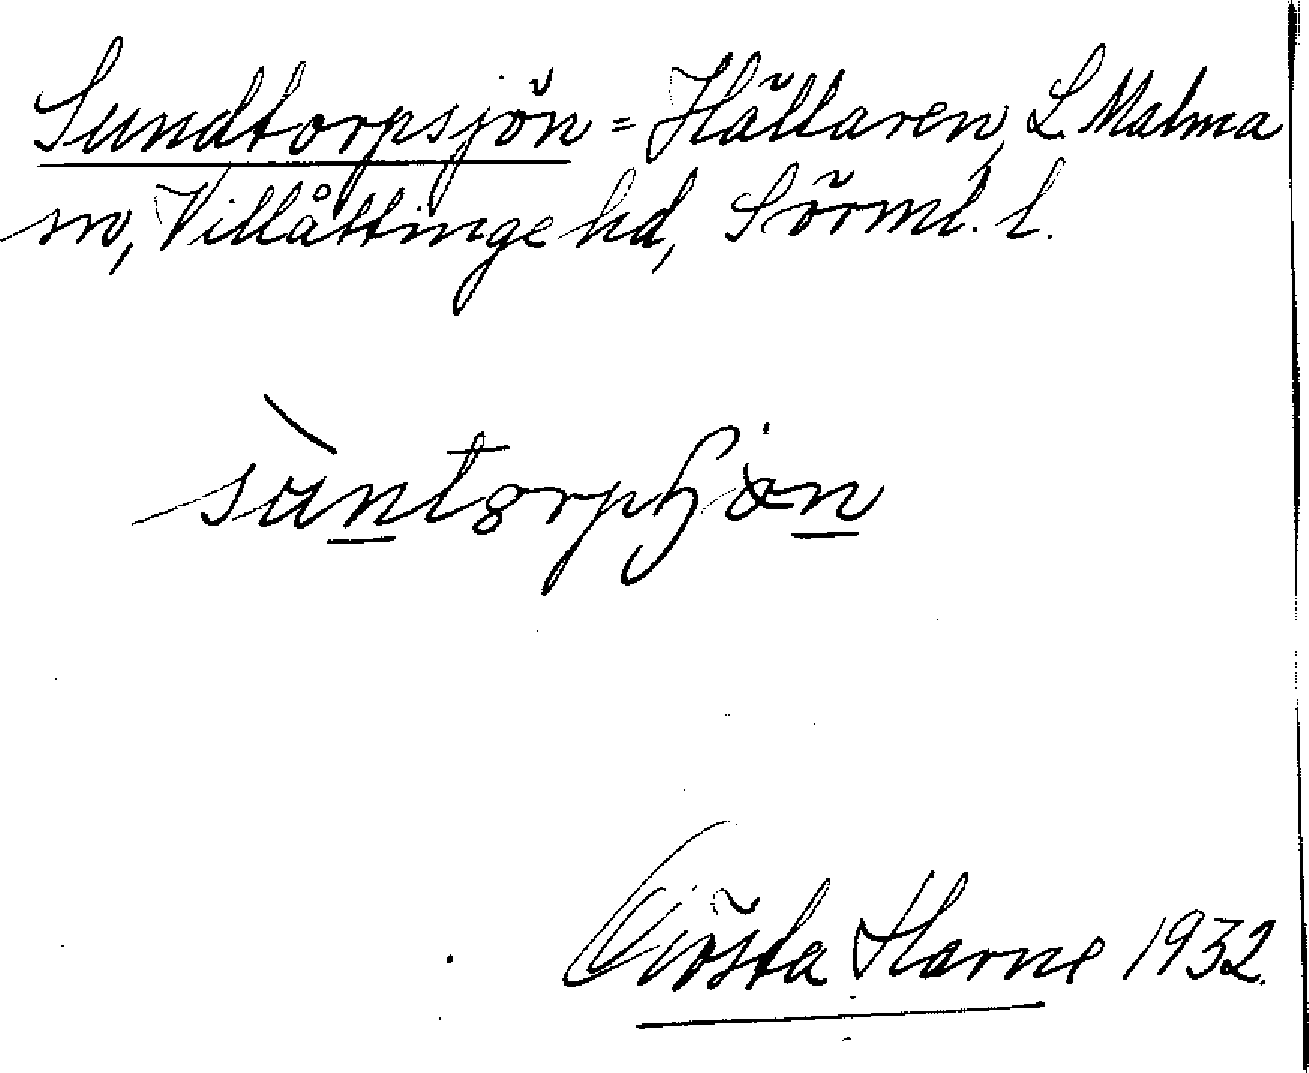 Sundtorpsjön = Hältaren, L Malma
sn, Villåttinge hd, Sörml. l.
Gösta Harne 1932.